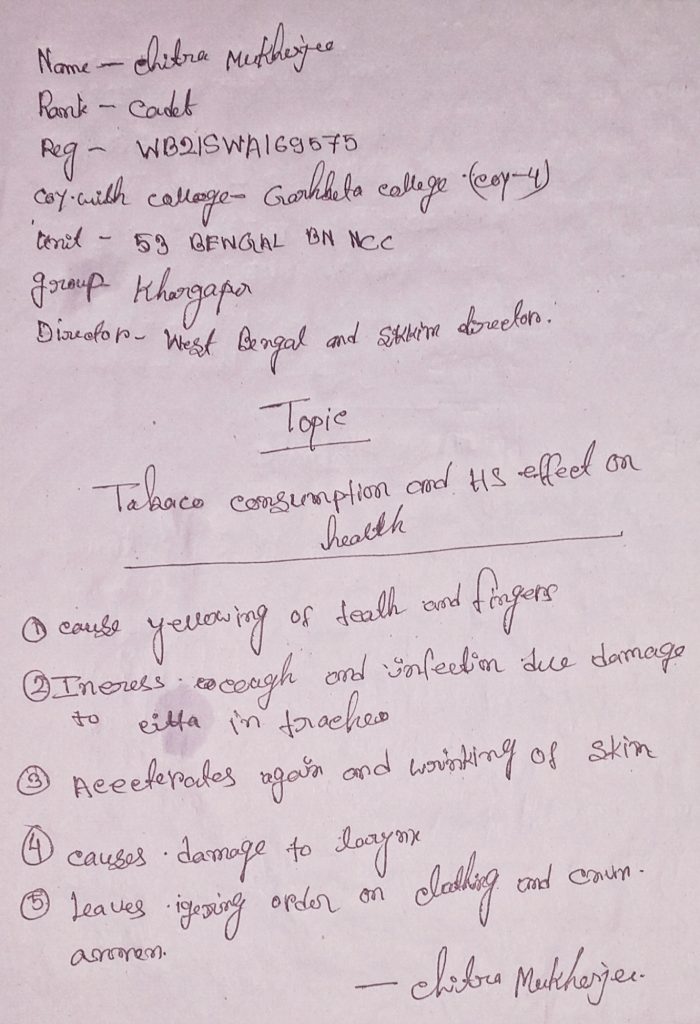 Name - Chitra Mukherjee
Rank - Cadet
Reg - WB21SWA169575
coy. with collage - Garhbeta college (coy-4)
Unit - 53 BENGAL BN NCC
group Khargapur
Director - West Bengal and Sikkim director.
Topic
Tabaco consumption and its effect on
health
① cause yellowing of teath and fingers
② Incress cough and infection due damage
to in trachea
③ Accelerates again and wrinking of skin
④ causes damage to larynx
⑤ Leaves order on clothing and
- Chitra Mukherjee.